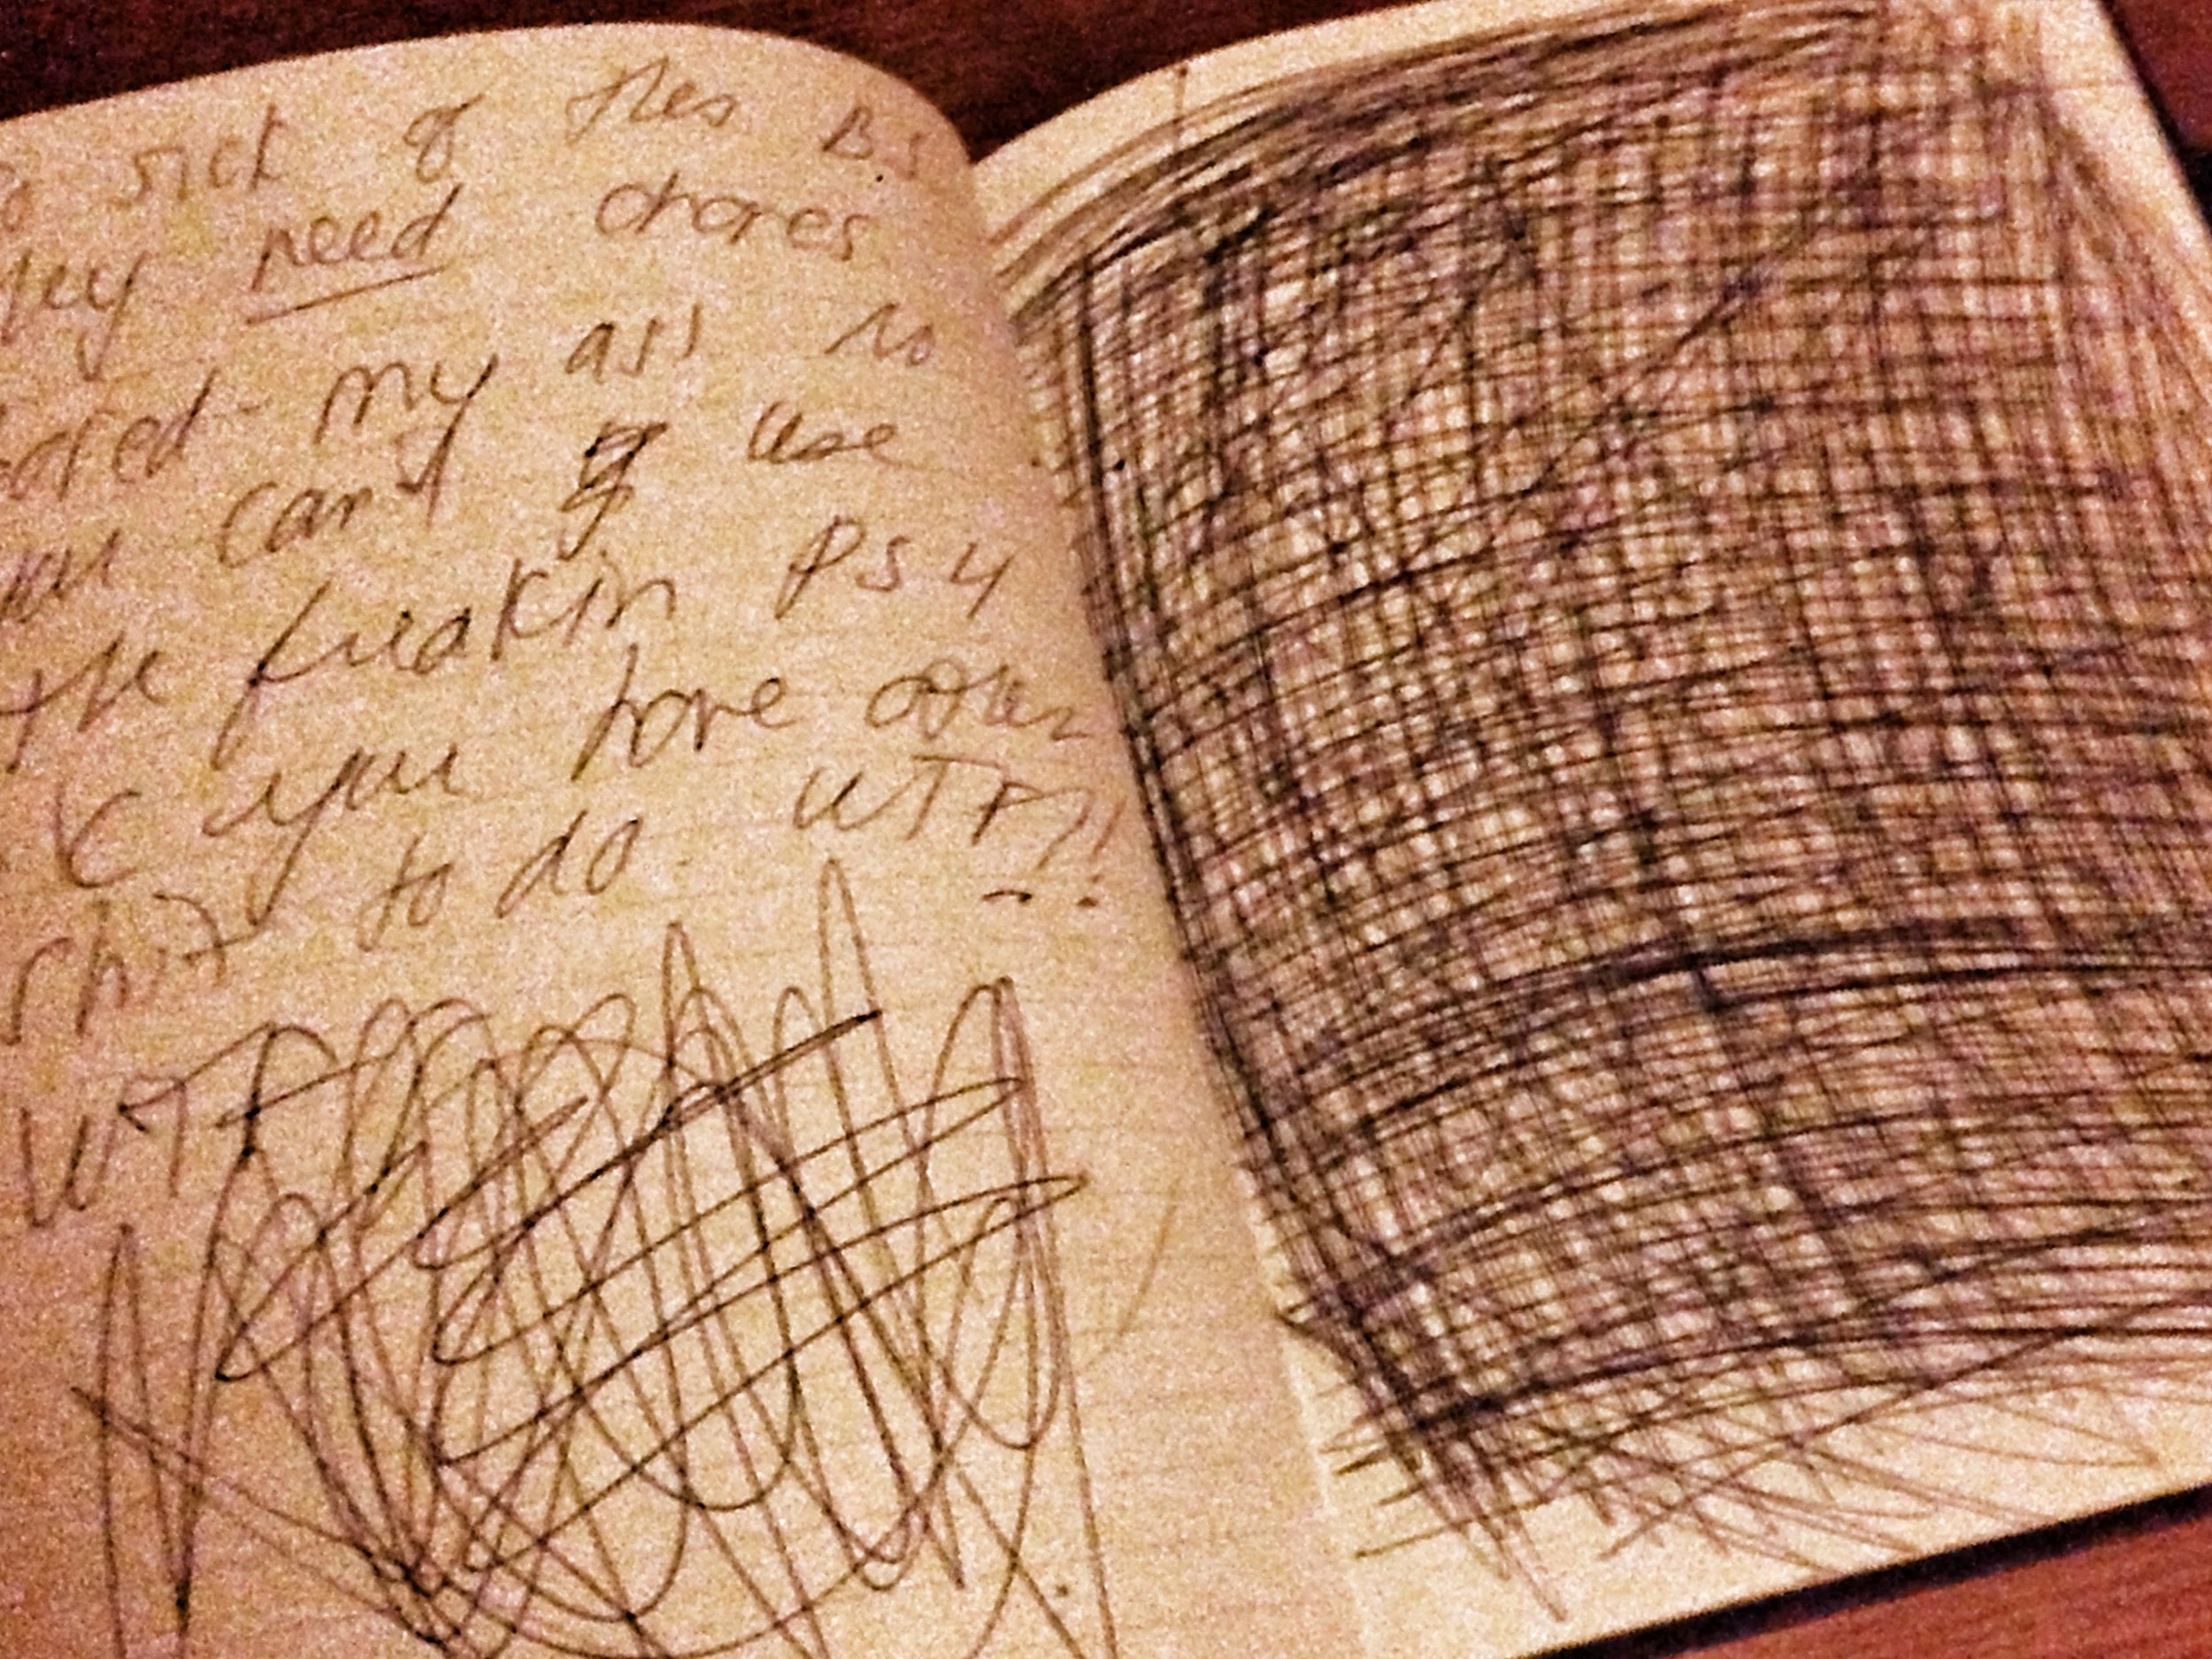 sick of this B.S
they need chores
my ass no
you can't use
the freakin PS4
you have other
shit to do. WTF?!
WTF